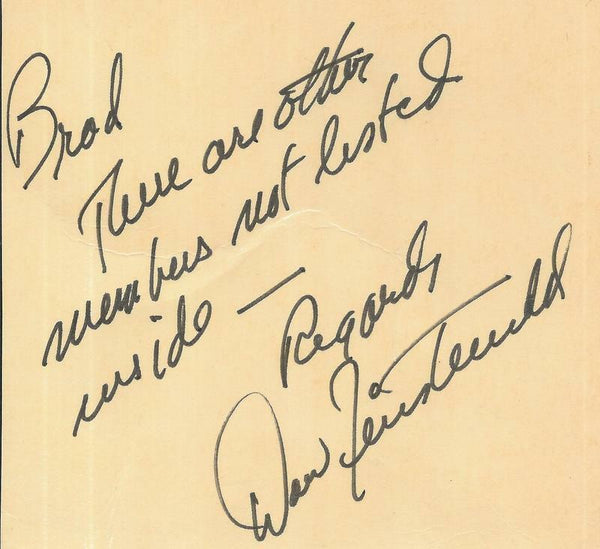 Brad
There are other
members not listed
inside —
Regards
Dan